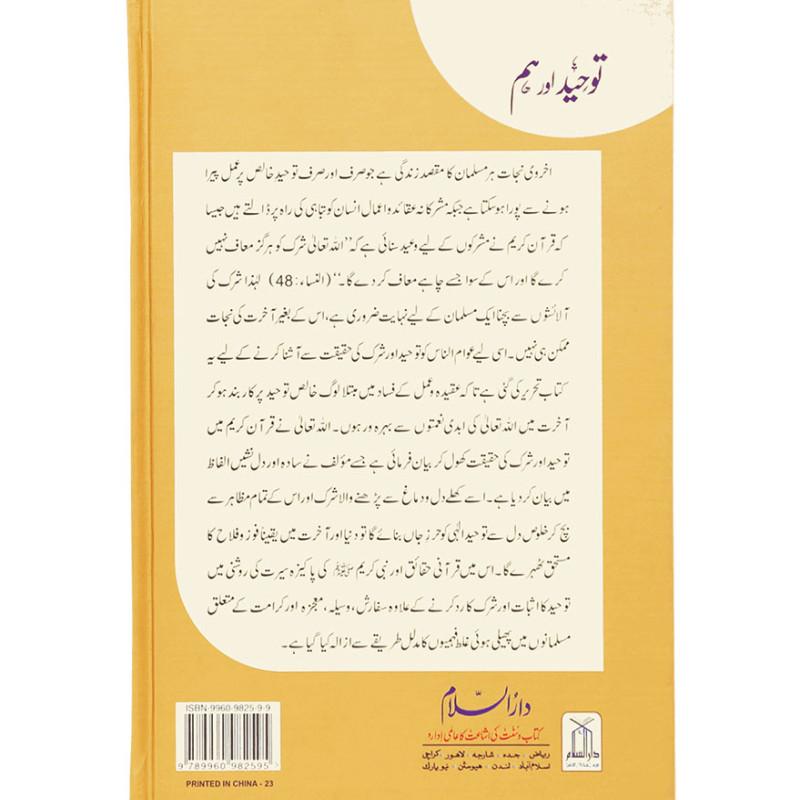 توحید اور ہم
اخروی نجات ہر مسلمان کا مقصد زندگی ہے جو صرف اور صرف توحید خالص پر عمل پیرا
ہونے سے پورا ہوسکتا ہے جبکہ مشرکانہ عقائد و اعمال انسان کو تباہی کی راہ پر ڈالتے ہیں جیسا
کہ قرآن کریم نے مشرکوں کے لیے وعید سنائی ہے کہ ’’اللہ تعالیٰ شرک کو ہرگز معاف نہیں
کرے گا اور اس کے سوا جسے چاہے معاف کر دے گا۔‘‘ (النساء: 48) لہٰذا شرک کی
آلائشوں سے بچنا ایک مسلمان کے لیے نہایت ضروری ہے، اس کے بغیر آخرت کی نجات
ممکن ہی نہیں۔ اسی لیے عوام الناس کو توحید اور شرک کی حقیقت سے آشنا کرنے کے لیے یہ
کتاب تحریر کی گئی ہے تاکہ عقیدہ و عمل کے فساد میں مبتلا لوگ خالص توحید پر کاربند ہوکر
آخرت میں اللہ تعالیٰ کی ابدی نعمتوں سے بہرہ ور ہوں۔ اللہ تعالیٰ نے قرآن کریم میں
توحید اور شرک کی حقیقت کھول کر بیان فرمائی ہے جسے مؤلف نے سادہ اور دل نشیں الفاظ
میں بیان کر دیا ہے۔ اسے کھلے دل و دماغ سے پڑھنے والا شرک اور اس کے تمام مظاہر سے
بچ کر خلوص دل سے توحید الٰہی کو حرز جاں بنائے گا تو دنیا اور آخرت میں یقیناً فوز و فلاح کا
مستحق ٹھہرے گا۔ اس میں قرآنی حقائق اور نبی کریم ﷺ کی پاکیزہ سیرت کی روشنی میں
توحید کا اثبات اور شرک کا رد کرنے کے علاوہ سفارش، وسیلہ، معجزہ اور کرامت کے متعلق
مسلمانوں میں پھیلی ہوئی غلط فہمیوں کا مدلل طریقے سے ازالہ کیا گیا ہے۔
دارالسلام
کتاب و سنت کی اشاعت کا عالمی ادارہ
ریاض • جدہ • شارجہ • لاہور • کراچی
اسلام آباد • لندن • ہیوسٹن • نیویارک
دارالسلام
ISBN-9960-9825-9-9
9 789960 982595
PRINTED IN CHINA - 23